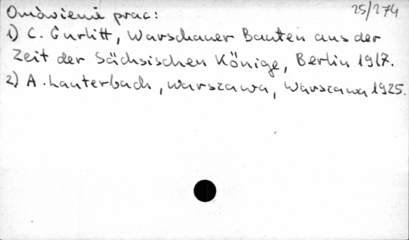 Omówienie prac: 25/274
1) C. Gurlitt, Warschauer Bauten aus der
Zeit der Sächsischen Könige, Berlin 1917.
2) A. Lauterbach, Warszawa, Warszawa 1925.